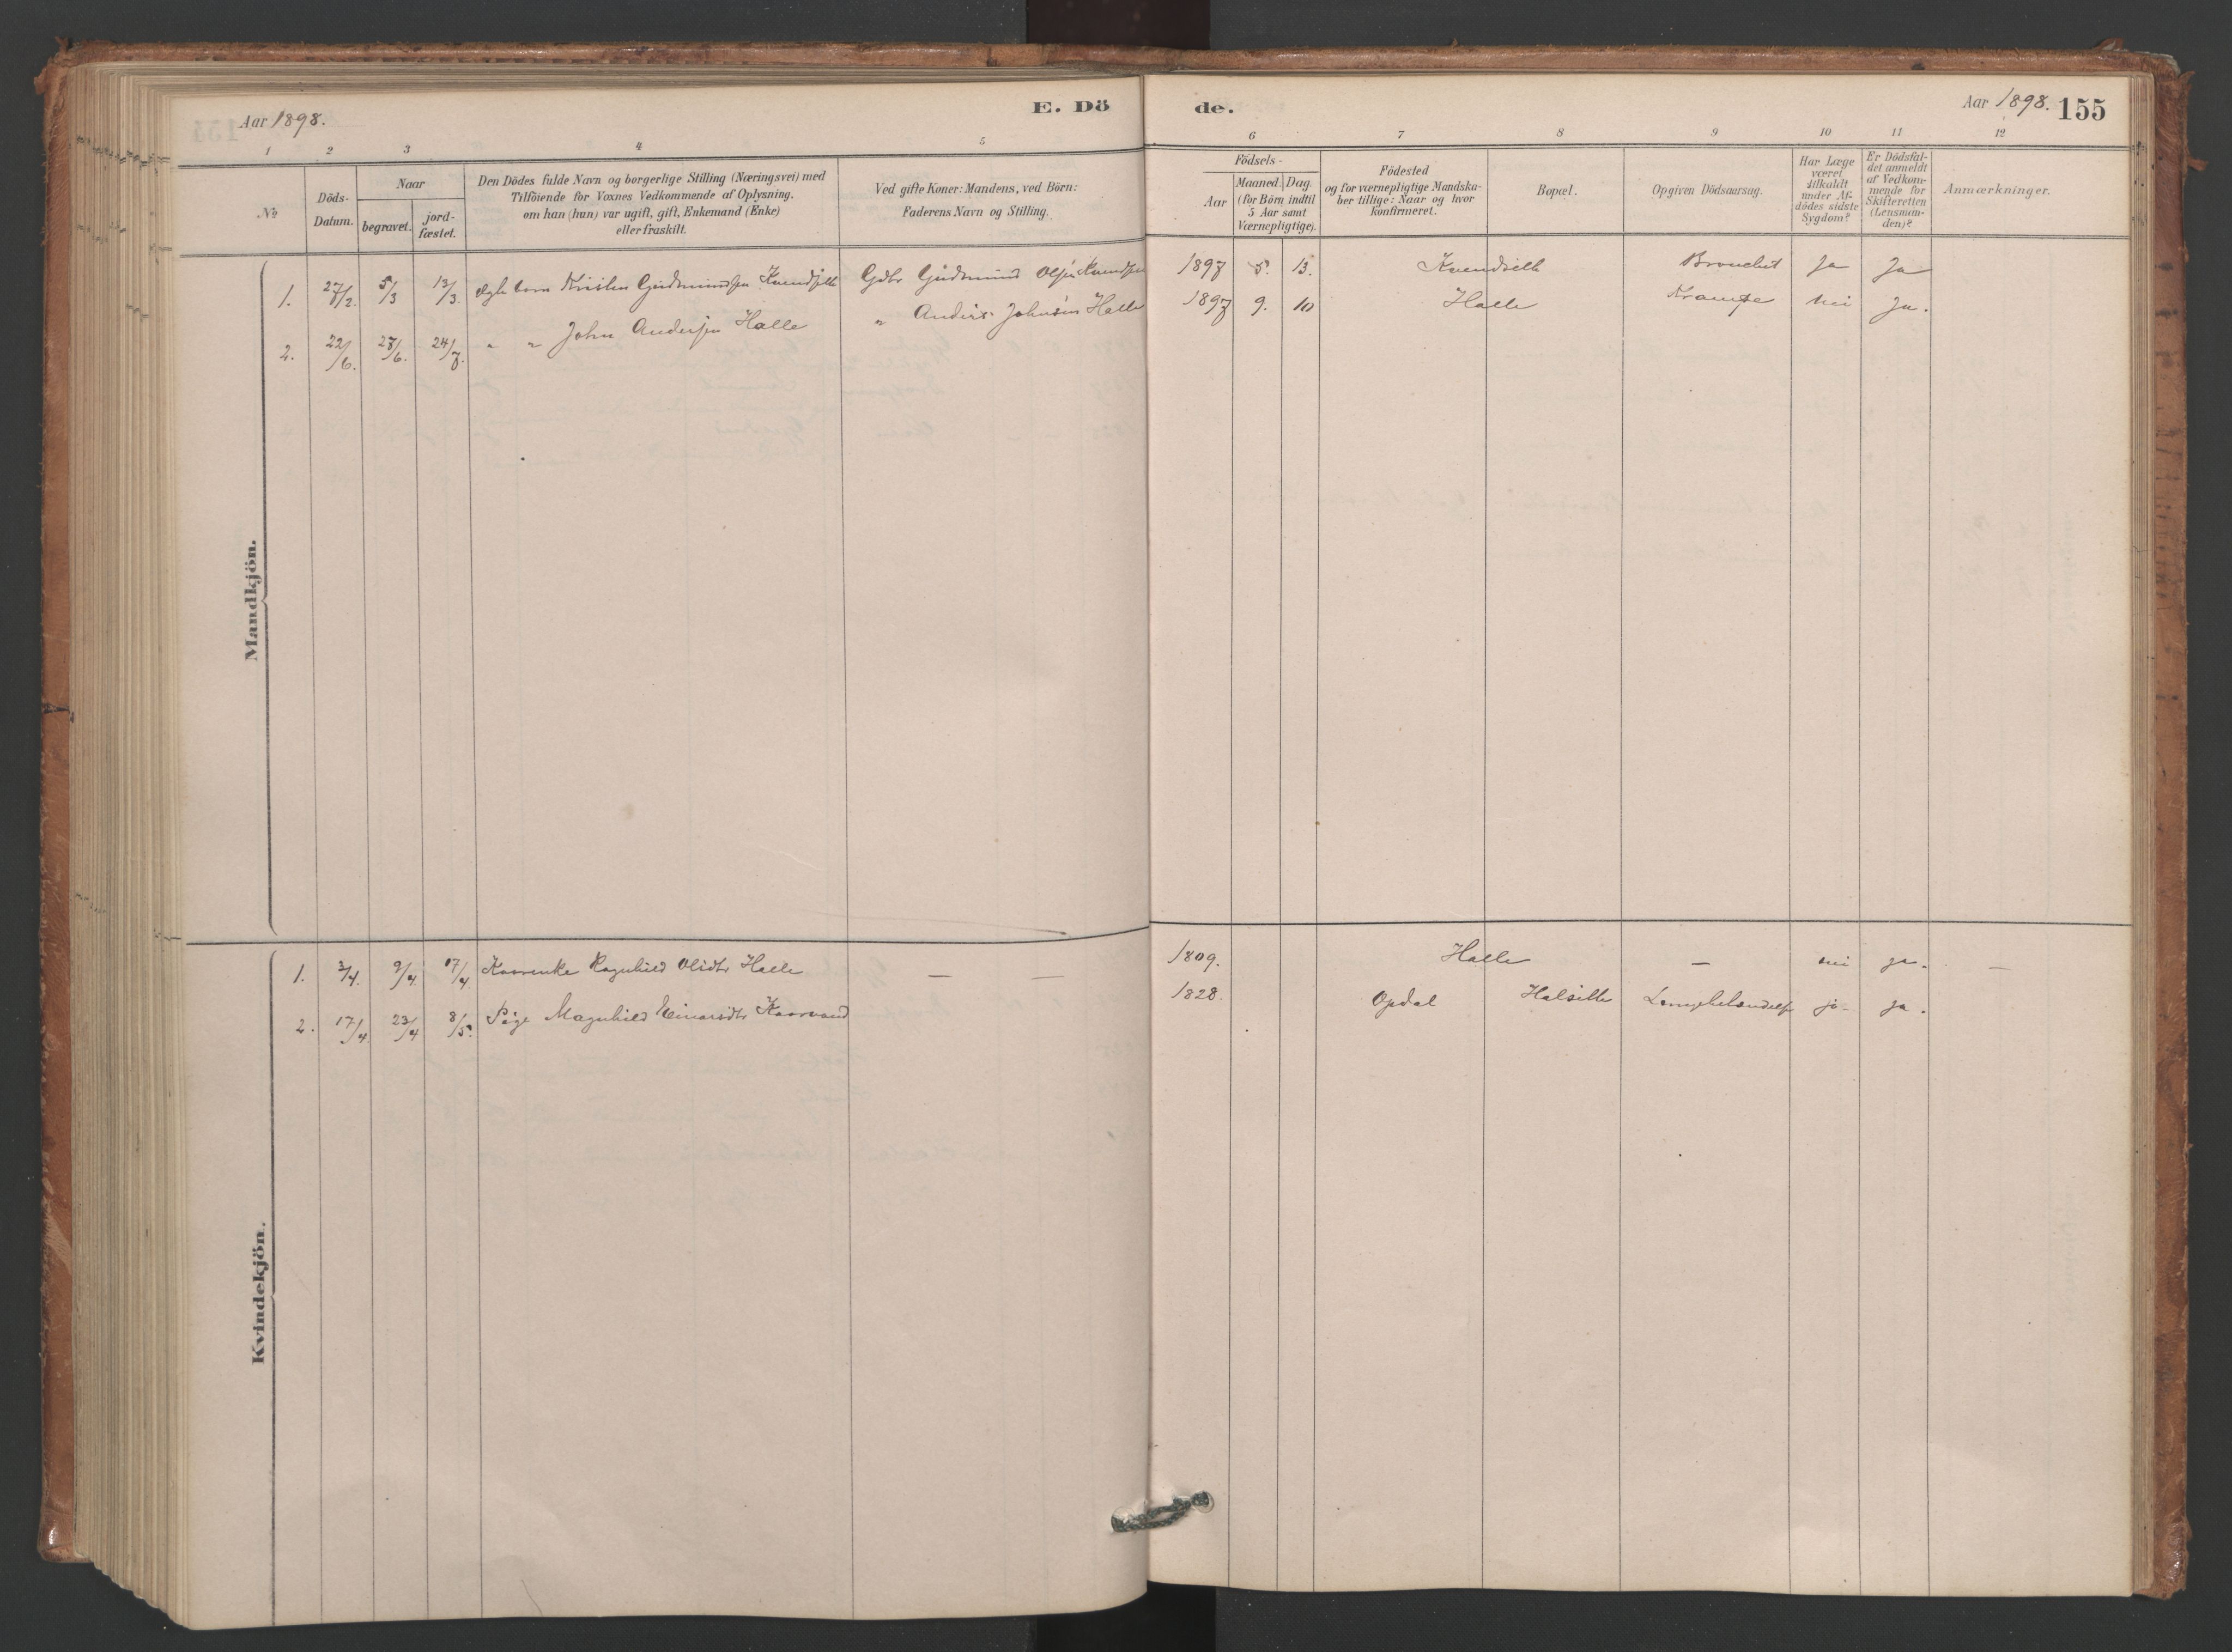 Aar 1898.
E. Dö
de.
Aar 1898.
155
1 2 3 4 5 6 7 8 9 10 11 12
No
Döds-
Datum.
Naar
begravet.
jord-
fæstet.
Den Dödes fulde Navn og borgerlige Stilling (Næringsvei) med
Tilföiende for Voxnes Vedkommende af Oplysning,
om han (hun) var ugift, gift, Enkemand (Enke)
eller fraskilt.
Ved gifte Koner: Mandens, ved Börn:
Faderens Navn og Stilling.
Födsels-
Aar
Maaned.
Dag.
(for Börn indtil
5 Aar samt
Værnepligtige).
Födested
og for værnepligtige Mandska-
ber tillige: Naar og hvor
konfirmeret.
Bopæl.
Opgiven Dödsaarsag.
Har Læge
været
tilkaldt
under Af-
dödes sidste
Sygdom?
Er Dödsfal-
det anmeldt
af Vedkom-
mende for
Skifteretten
(Lensman-
den)?
Anmærkninger.
Mandkjön.
1. 27/2. 5/3 13/3. Barn Kristen Gudmundsen Gdbr Gudmund Olsen 1897 5. 13. Bronchit Ja Ja
2. 22/6. 27/6. 24/7. " " John Andersen Halle " Anders Johnsen Halle 1897 9. 10 Halle Krampe nei Ja.
Kvindekjön.
1. 3/4. 9/4. 17/4. Ragnhild Olsdtr Halle — — 1809. Halle — nei ja. —
2. 17/4. 23/4 8/5. Pige Magnhild Einarsdtr 1828. Opdal ja. ja.